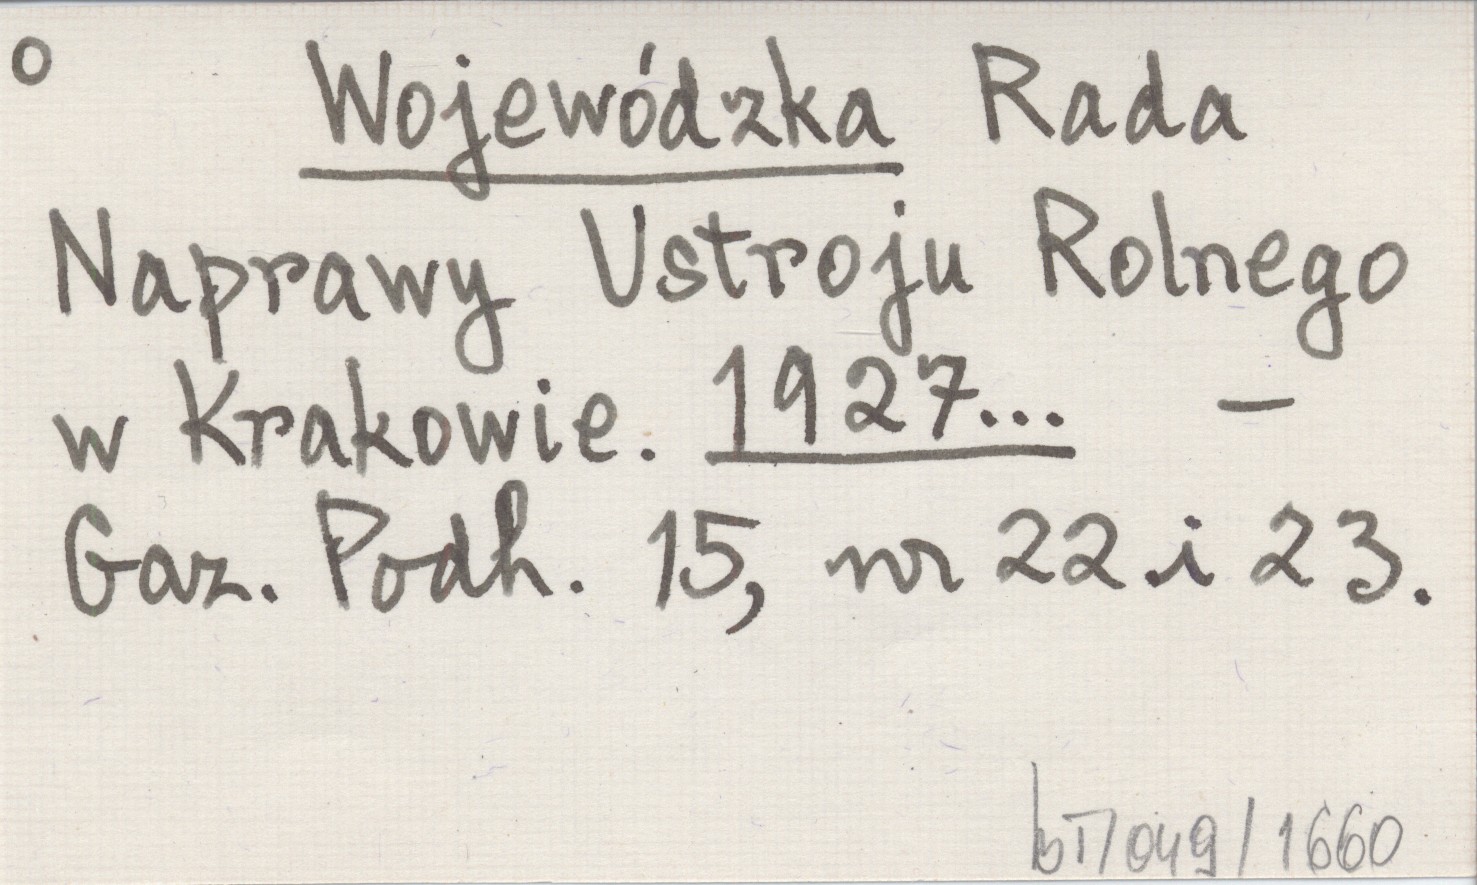 o Wojewódzka Rada
Naprawy Ustroju Rolnego
w Krakowie. 1927... –
Gaz. Podh. 15, nr 22 i 23.
bT/049/1660